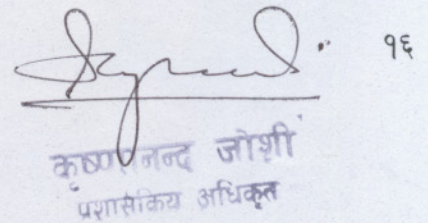 १६
कृष्णानन्द जोशी
प्रशासकिय अधिकृत